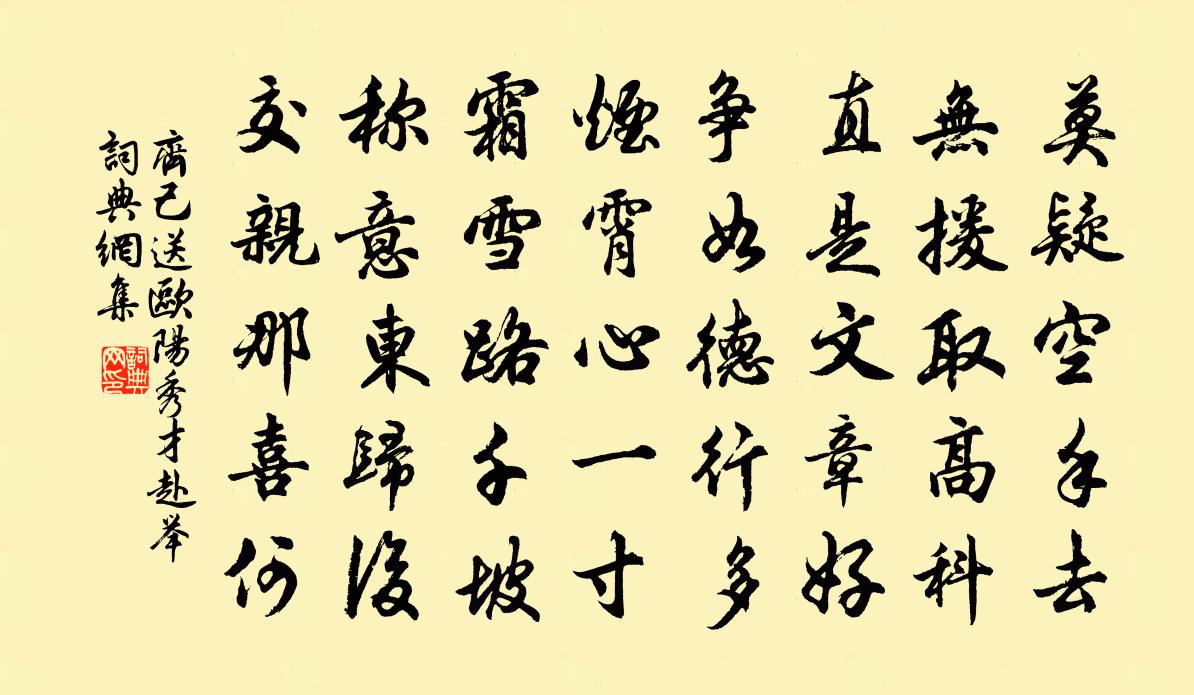 莫疑空手去
無援取高科
直是文章好
争如德行多
煙霄心一寸
霜雪路千坡
称意東歸後
交親那喜何
齊己送歐陽秀才赴举
詞典網集
詞典网印